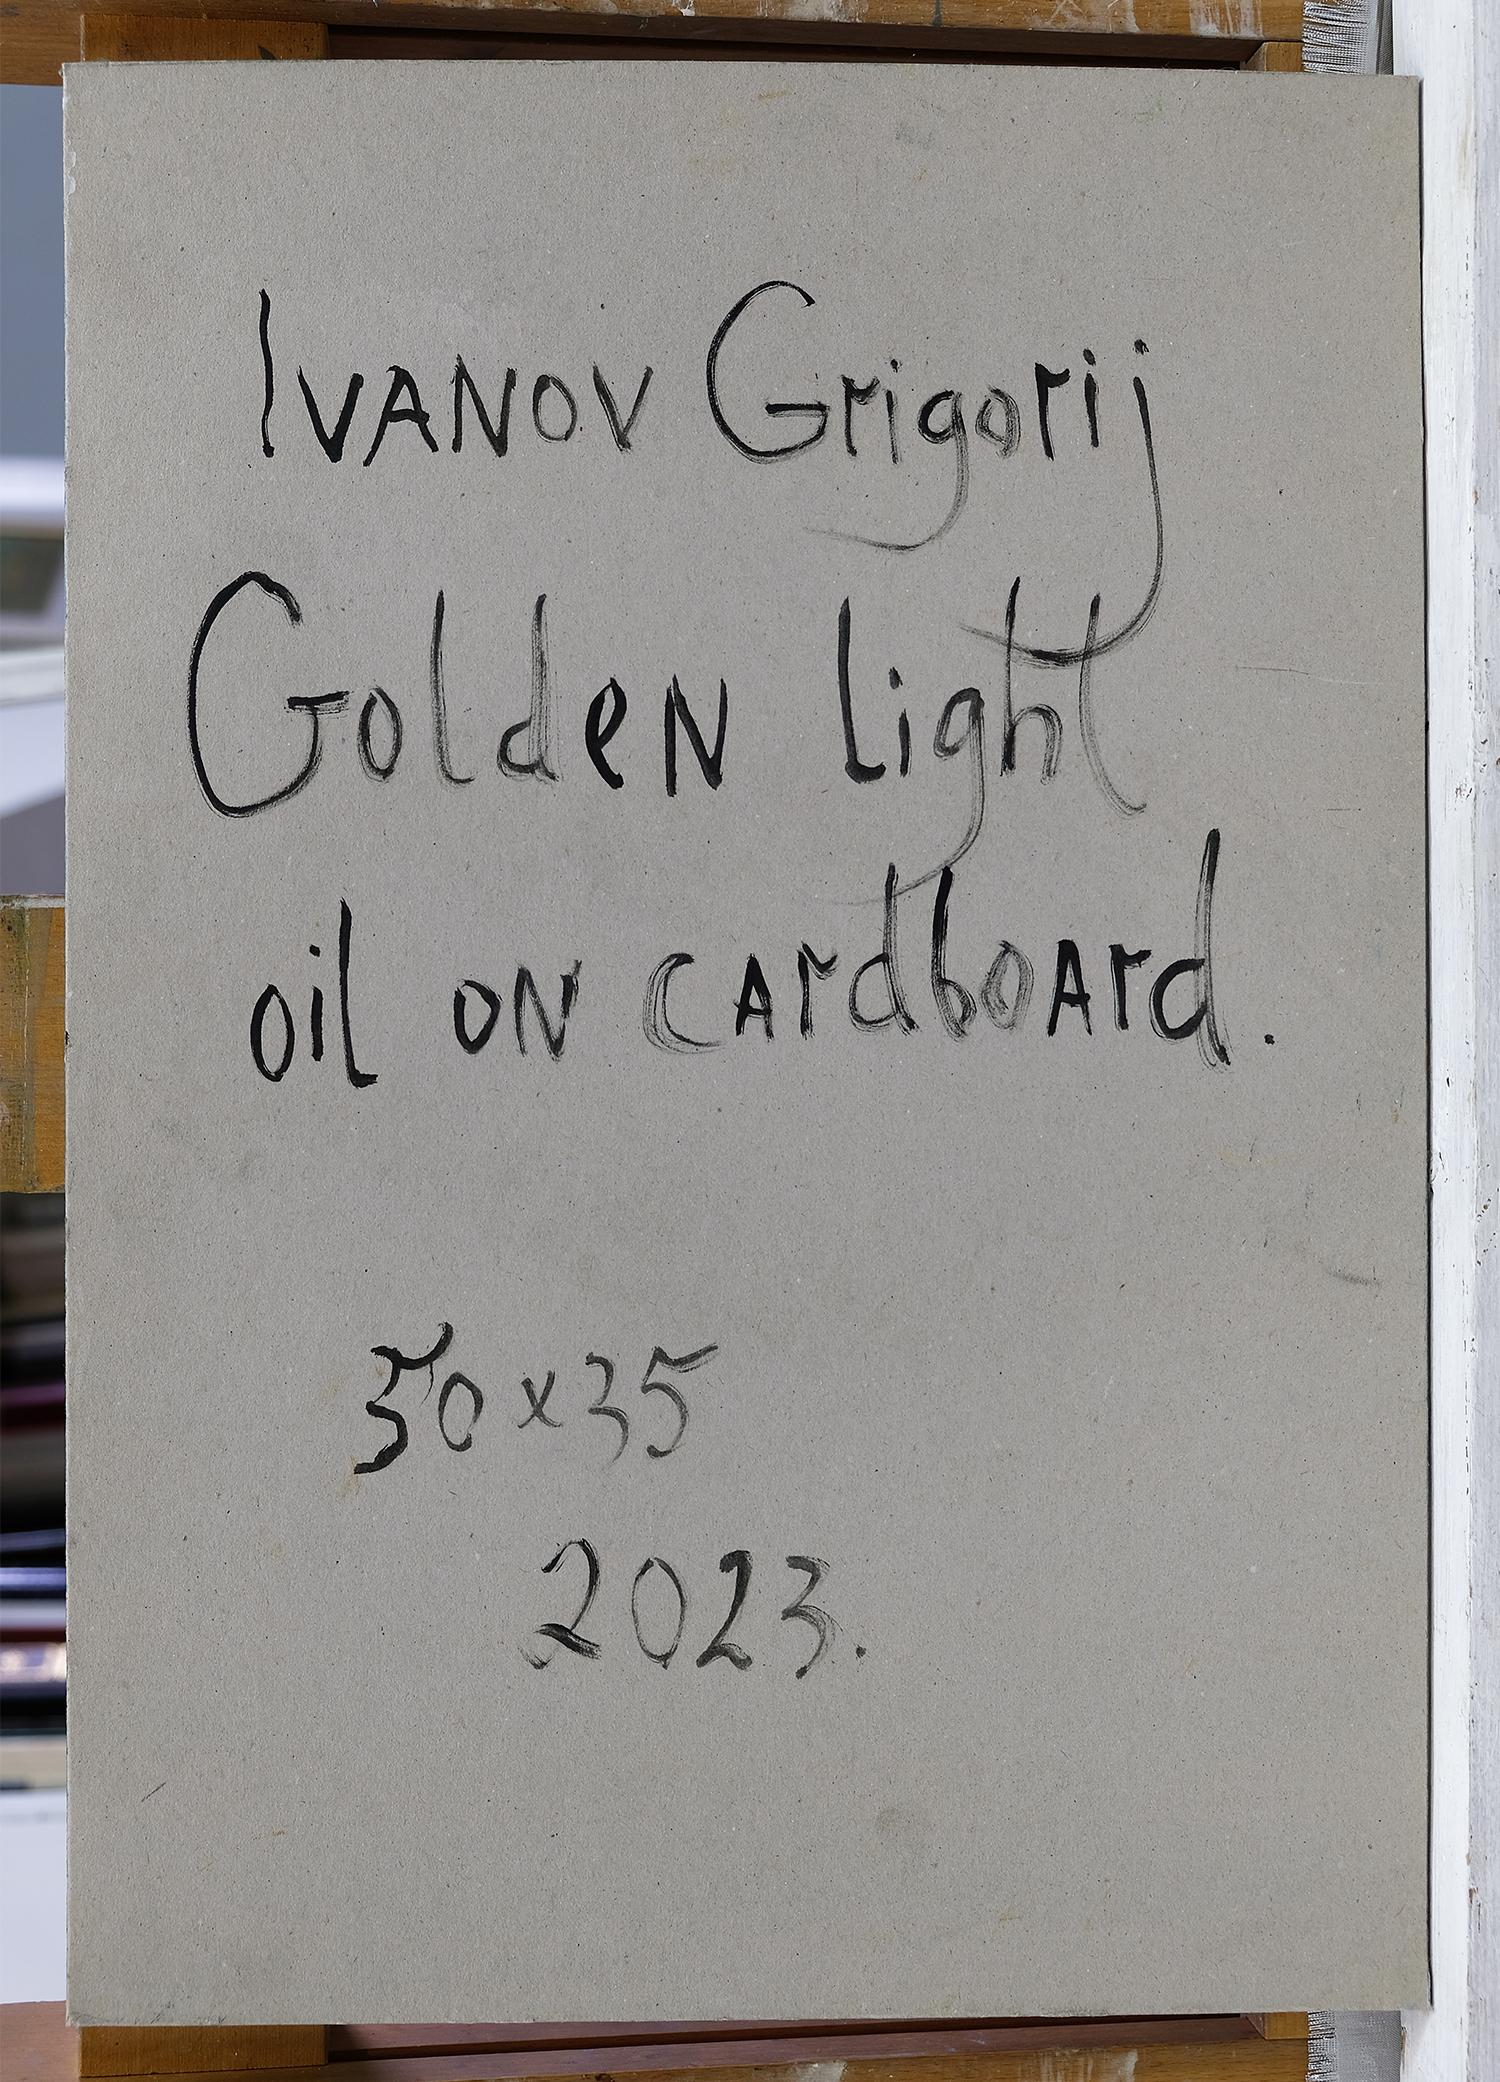 IVANOV Grigorij
Golden light
oil on cardboard.
50x35
2023.